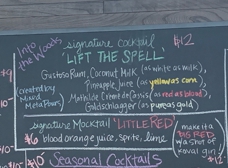 Into the Woods
signature cocktail $12
"LIFT THE SPELL"
Gustoso Rum, Coconut Milk (as white as milk),
Pineapple Juice (as yellow as corn),
Mathilde Creme de Cassis (as red as blood),
Goldschlager (as pure as gold)
(created by
Murd
signature Mocktail "LITTLE RED"
$6 blood orange juice, sprite, lime
make it a
BIG RED
w/a shot of
$12
$10 Seasonal Cocktails